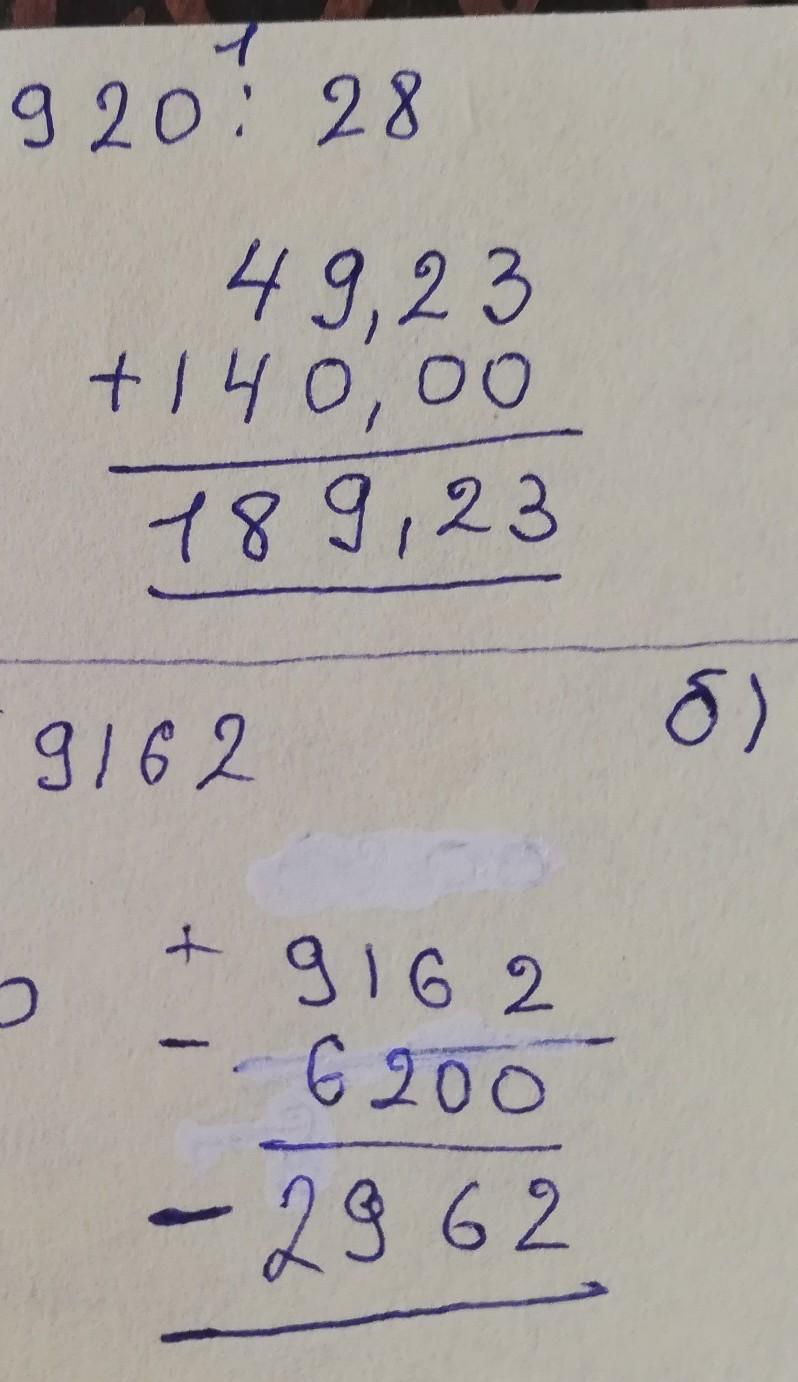 1
920 : 28
49,23
+140,00
189,23
9162 б)
+ 9162
- 6200
-2962